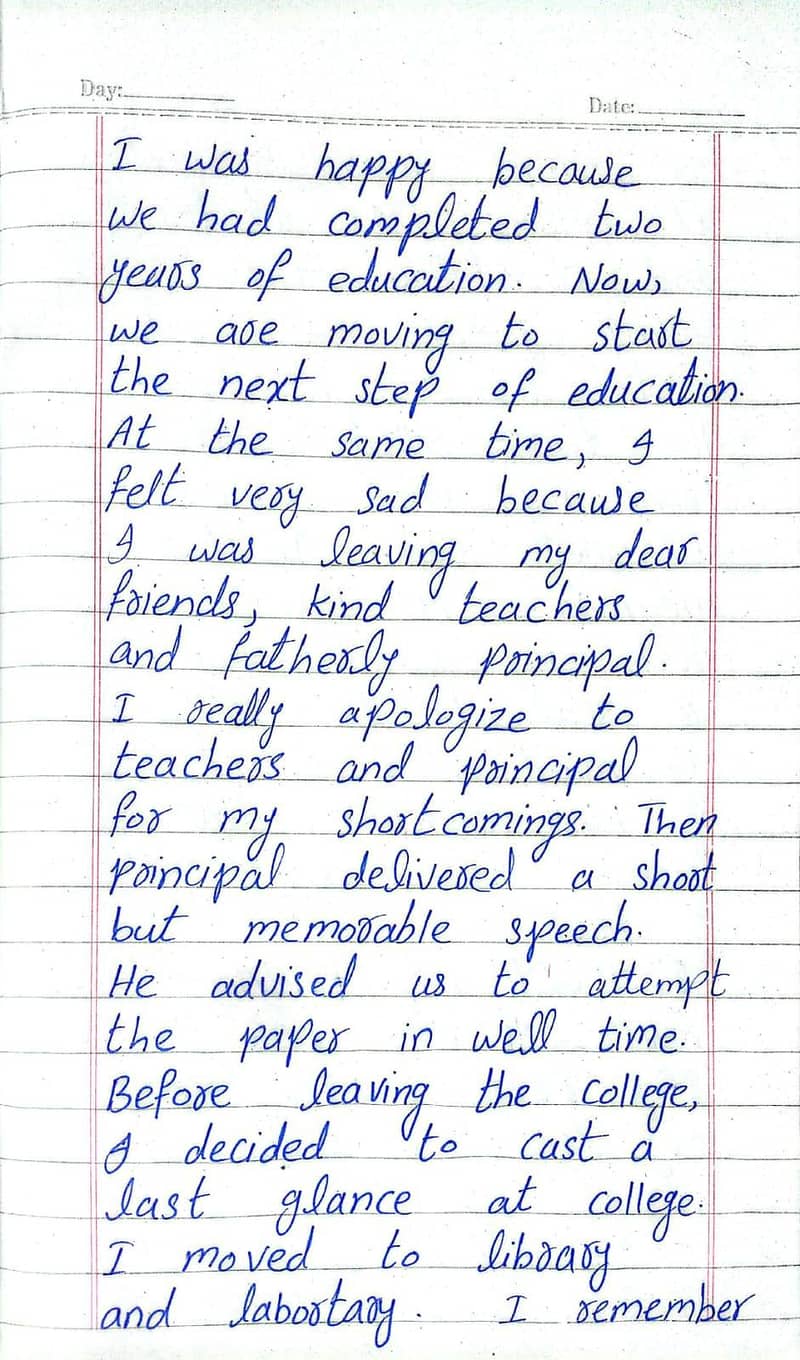 Day:
Date:
I was happy because
we had completed two
years of education. Now,
we are moving to start
the next step of education.
At the same time, I
felt very sad because
I was leaving my dear
friends, kind teachers
and fatherly principal.
I really apologize to
teachers and principal
for my shortcomings. Then
principal delivered a short
but memorable speech.
He advised us to attempt
the paper in well time.
Before leaving the college,
I decided to cast a
last glance at college.
I moved to library
and labortary. I remember